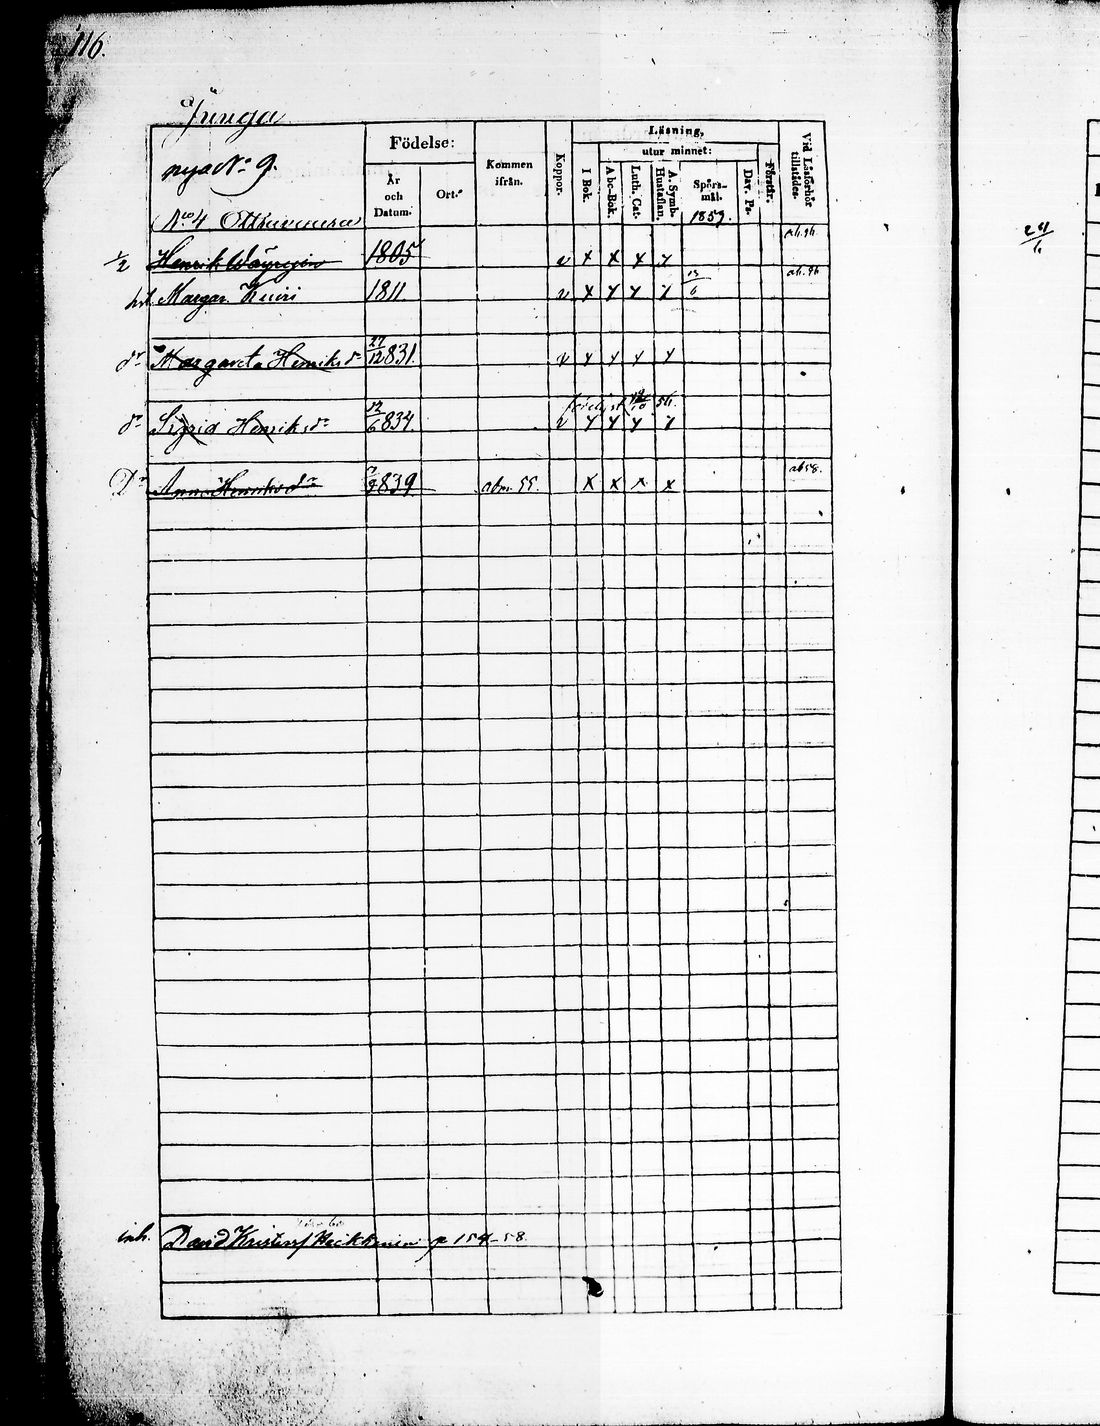 116.
Junga
nya No 9.
No 4
Födelse:
År
och
Datum.
Ort.
Kommen
ifrån.
Koppor.
Läsning,
utur minnet:
I Bok.
Abc-Bok.
Luth. Cat.
A. Symb.
Hustaflan.
Spörs-
mål.
1859.
Dav. Ps.
Förstår.
Vid Läsförhör
tillstädes.
1/2 Henrik 1805 v x x x x
Margar. Kuiri 1811 v x x x x 13/6
dr Margareta Henriksdr 27/12 831. v x x x x
56
dr Sigrid Henriksdr 12/6 834. v x x x x
Dr Anna Henriksdr 839 abm. 55. x x x x ab 58.
inh. David Kristof Heikkinen p 154-58
24/6